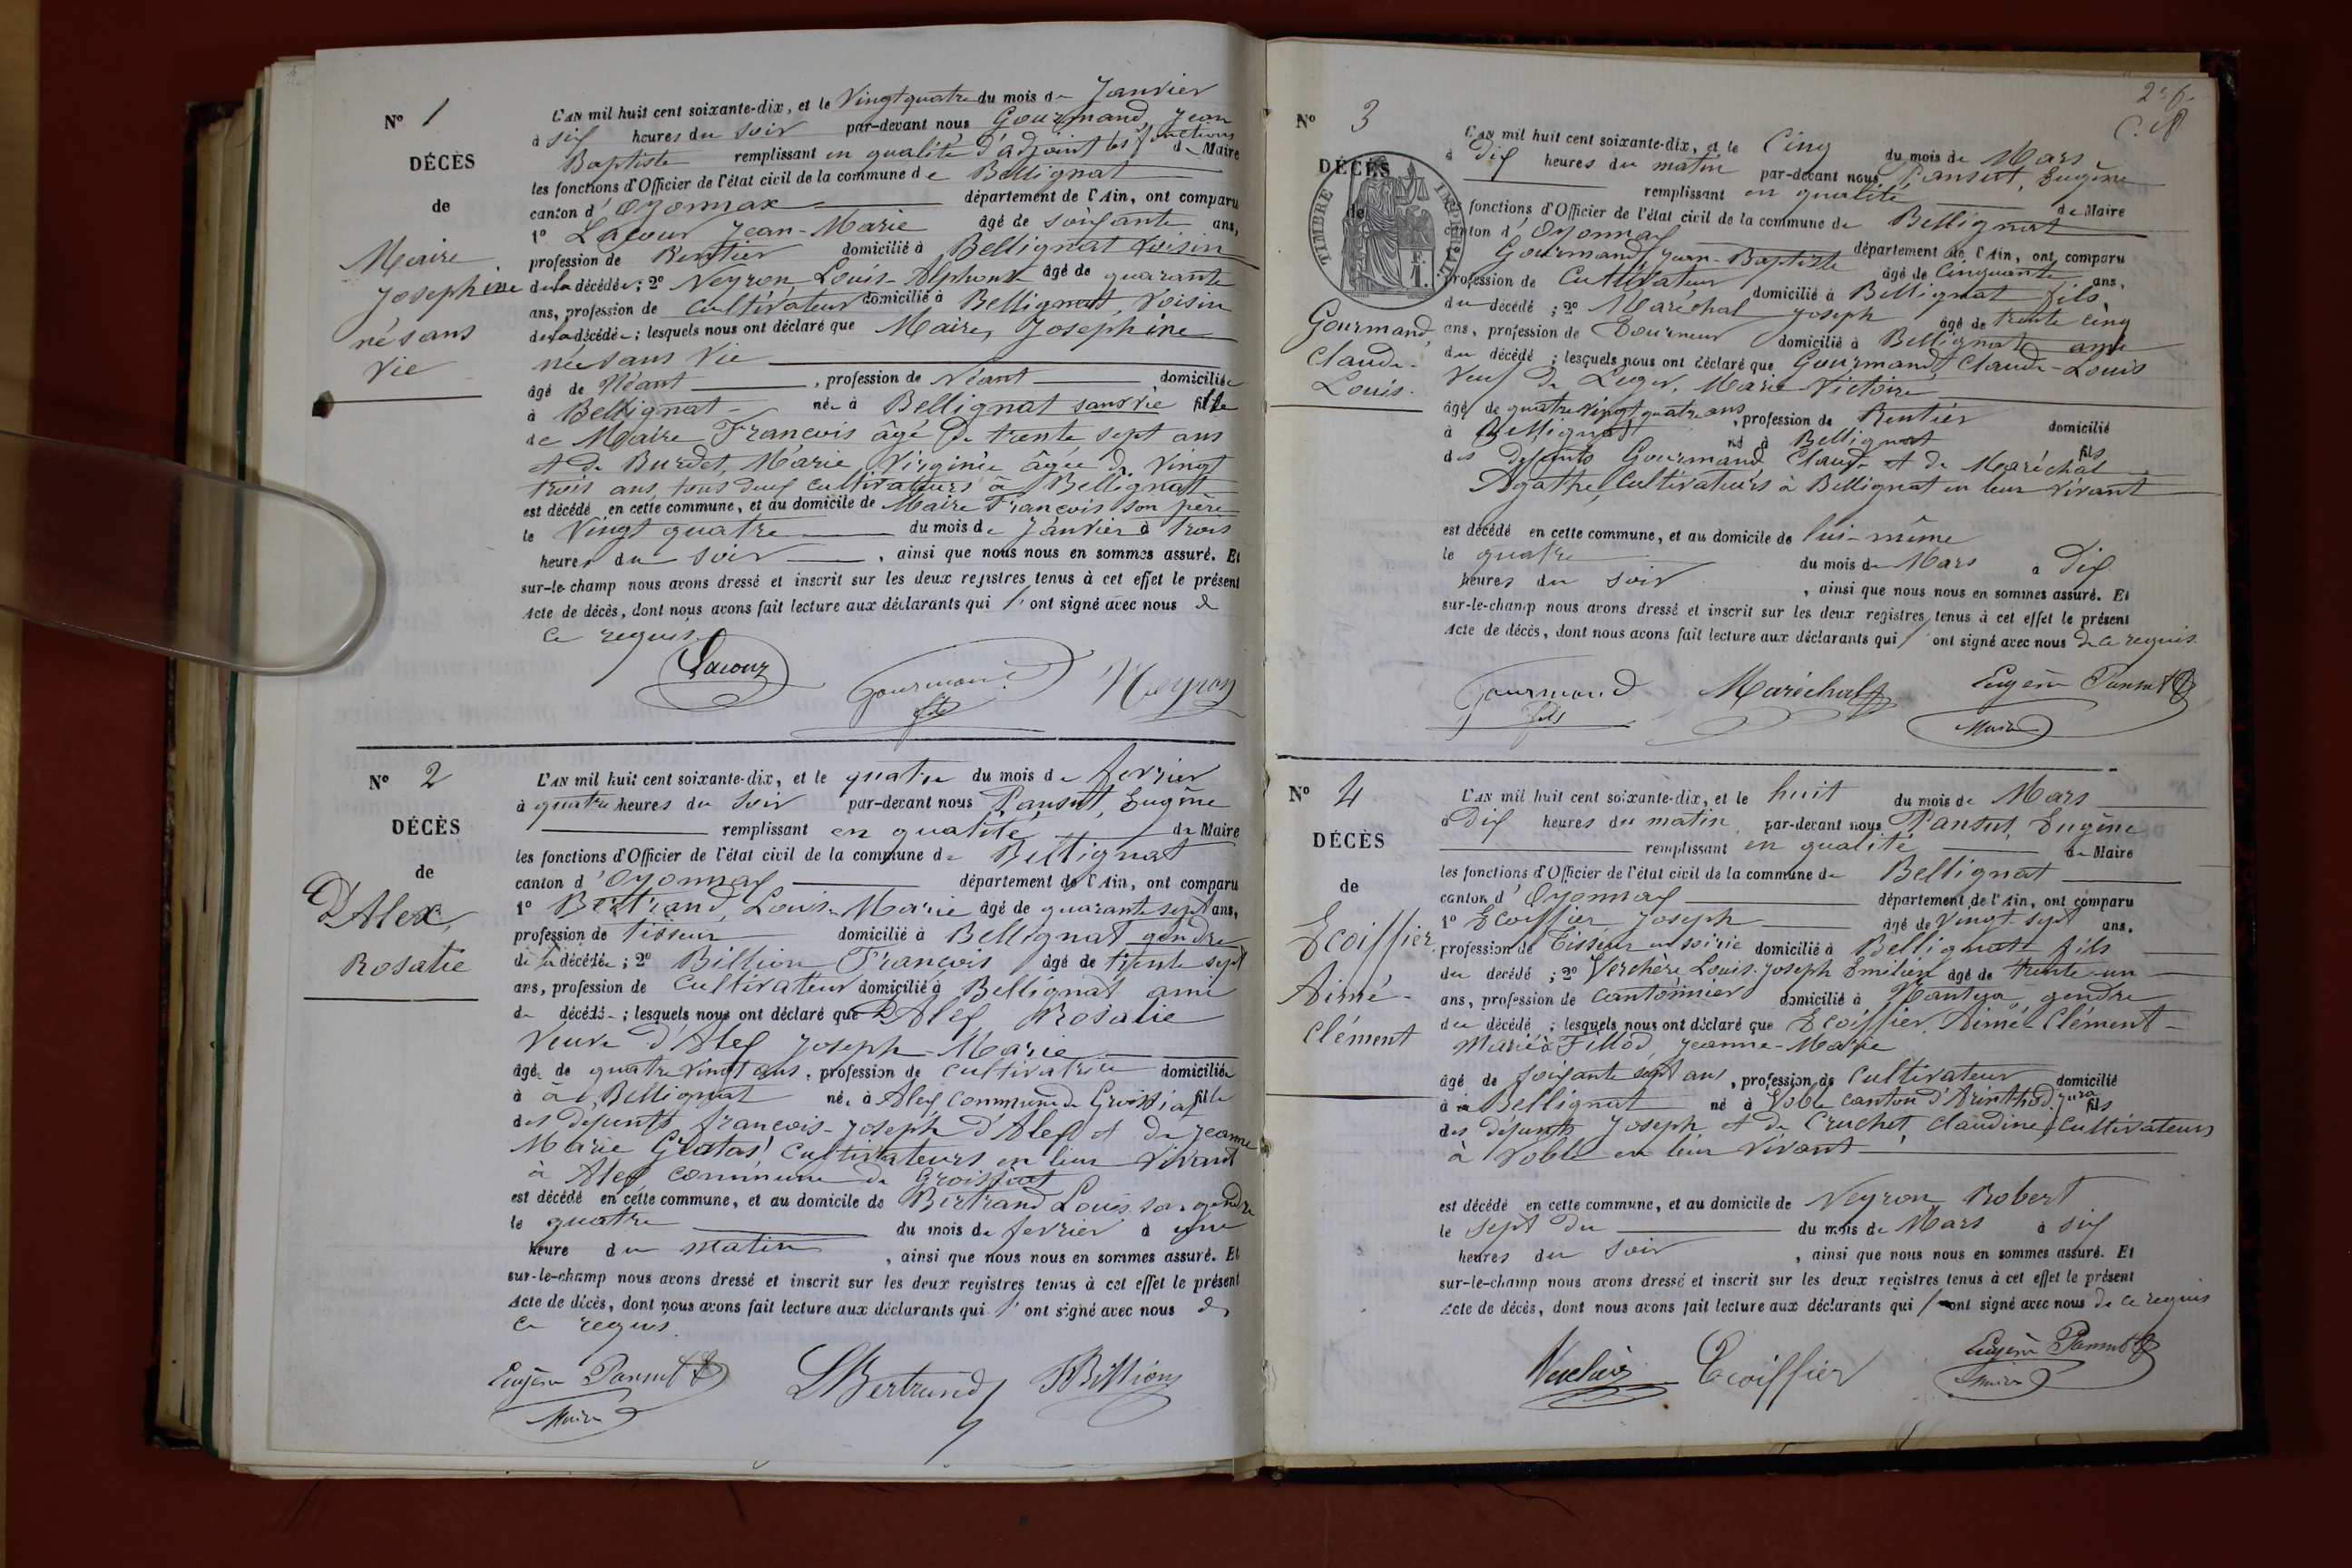 N° 1
DÉCÈS
de
Maire
Josephine
né sans
vie
L'AN mil huit cent soixante-dix, et le Vingt quatre du mois de Janvier
à six heures du Soir par-devant nous Gourmand, Jean
Baptiste remplissant en qualité d'adjoint les fonctions de Maire
les fonctions d'Officier de l'état civil de la commune de Bellignat
canton d'Oyonnax département de l'Ain, ont comparu
1° Lacour Jean-Marie âgé de soixante ans,
profession de Rentier domicilié à Bellignat Voisin
de la décédée; 2° Neyron Louis-Alphonse âgé de quarante
ans, profession de cultivateur domicilié à Bellignat, Voisin
de la décédée; lesquels nous ont déclaré que Maire, Josephine
née sans Vie
âgé de Néant, profession de Néant domiciliée
à Bellignat née à Bellignat sans vie fille
de Maire François âgé de trente sept ans
et de Burdet, Marie Virginie âgée de Vingt
trois ans, tous deux cultivateurs à Bellignat
est décédé en cette commune, et au domicile de Maire François son père
le Vingt quatre du mois de Janvier à trois
heures du Soir, ainsi que nous nous en sommes assuré. Et
sur-le-champ nous avons dressé et inscrit sur les deux registres tenus à cet effet le présent
Acte de décès, dont nous avons fait lecture aux déclarants qui l'ont signé avec nous de
ce requis.
Lacour Gourmand fils Neyron
N° 2
DÉCÈS
de
D'Alex,
Rosalie
L'AN mil huit cent soixante-dix, et le quatre du mois de fevrier
à quatre heures du Soir par-devant nous Pansut, Eugène
remplissant en qualité de Maire
les fonctions d'Officier de l'état civil de la commune de Bellignat
canton d'Oyonnax département de l'Ain, ont comparu
1° Bertrand, Louis-Marie âgé de quarante sept ans,
profession de tisseur domicilié à Bellignat gendre
de la décédée; 2° Billion François âgé de trente sept
ans, profession de cultivateur domicilié à Bellignat ami
de décédé; lesquels nous ont déclaré que D'Alex Rosalie
Veuve d'Alex Joseph-Marie
âgée de quatre vingt ans, profession de cultivatrice domiciliée
à à Bellignat née à Alex commune de Groissiat fille
des defunts françois-Joseph d'Alex et de Jeanne
Marie Gratas, cultivateurs en leur Vivant
à Alex, commune de Groissiat
est décédé en cette commune, et au domicile de Bertrand Louis son gendre
le quatre du mois de fevrier à une
heure du matin, ainsi que nous nous en sommes assuré. Et
sur-le-champ nous avons dressé et inscrit sur les deux registres tenus à cet effet le présent
Acte de décès, dont nous avons fait lecture aux déclarants qui l'ont signé avec nous de
ce requis.
Eugène Pansut Maire LBertrand Billion
2e f.
N° 3
DÉCÈS
de
TIMBRE IMPÉRIAL
Gourmand,
Claude-
Louis.
L'AN mil huit cent soixante-dix, et le Cinq du mois de Mars
à Dix heures du matin par-devant nous Pansut, Eugène
remplissant en qualité de Maire
les fonctions d'Officier de l'état civil de la commune de Bellignat
canton d'Oyonnax département de l'Ain, ont comparu
1° Gourmand Jean-Baptiste âgé de Cinquante ans,
profession de Cultivateur domicilié à Bellignat fils,
du décédé; 2° Maréchal Joseph âgé de trente cinq
ans, profession de Tourneur domicilié à Bellignat ami
du décédé; lesquels nous ont déclaré que Gourmand, Claude-Louis
Veuf de Leger, Marie-Victoire
âgé de quatre Vingt quatre ans, profession de Rentier domicilié
à Bellignat né à Bellignat fils
des defunts Gourmand Claude et de Maréchal
Agathe, Cultivateurs à Bellignat en leur Vivant
est décédé en cette commune, et au domicile de lui-même
le quatre du mois de Mars à Dix
heures du soir, ainsi que nous nous en sommes assuré. Et
sur-le-champ nous avons dressé et inscrit sur les deux registres tenus à cet effet le présent
Acte de décès, dont nous avons fait lecture aux déclarants qui l'ont signé avec nous de ce requis.
Gourmand fils Maréchal Eugène Pansut Maire
N° 4
DÉCÈS
de
Ecoiffier
Aimé-
Clément
L'AN mil huit cent soixante-dix, et le huit du mois de Mars
à Dix heures du matin, par-devant nous Pansut, Eugène
remplissant en qualité de Maire
les fonctions d'Officier de l'état civil de la commune de Bellignat
canton d'Oyonnax département de l'Ain, ont comparu
1° Ecoiffier Joseph âgé de Vingt-sept ans,
profession de Tisseur en soirie domicilié à Bellignat fils
du décédé; 2° Verchère Louis-Joseph Emilien âgé de trente-un
ans, profession de cantonnier domicilié à Nantua, gendre
du décédé; lesquels nous ont déclaré que Ecoiffier, Aimé-Clément
Marié à Fillod, Jeanne-Marie
âgé de soixante sept ans, profession de Cultivateur domicilié
à à Bellignat né à Voble canton d'Arinthod, Jura fils
des defunts Joseph et de Cruchet Claudine, Cultivateurs
à Voble en leur Vivant
est décédé en cette commune, et au domicile de Neyron Robert
le sept du du mois de Mars à six
heures du soir, ainsi que nous nous en sommes assuré. Et
sur-le-champ nous avons dressé et inscrit sur les deux registres tenus à cet effet le présent
Acte de décès, dont nous avons fait lecture aux déclarants qui l'ont signé avec nous de ce requis
Verchère Ecoiffier Eugène Pansut Maire